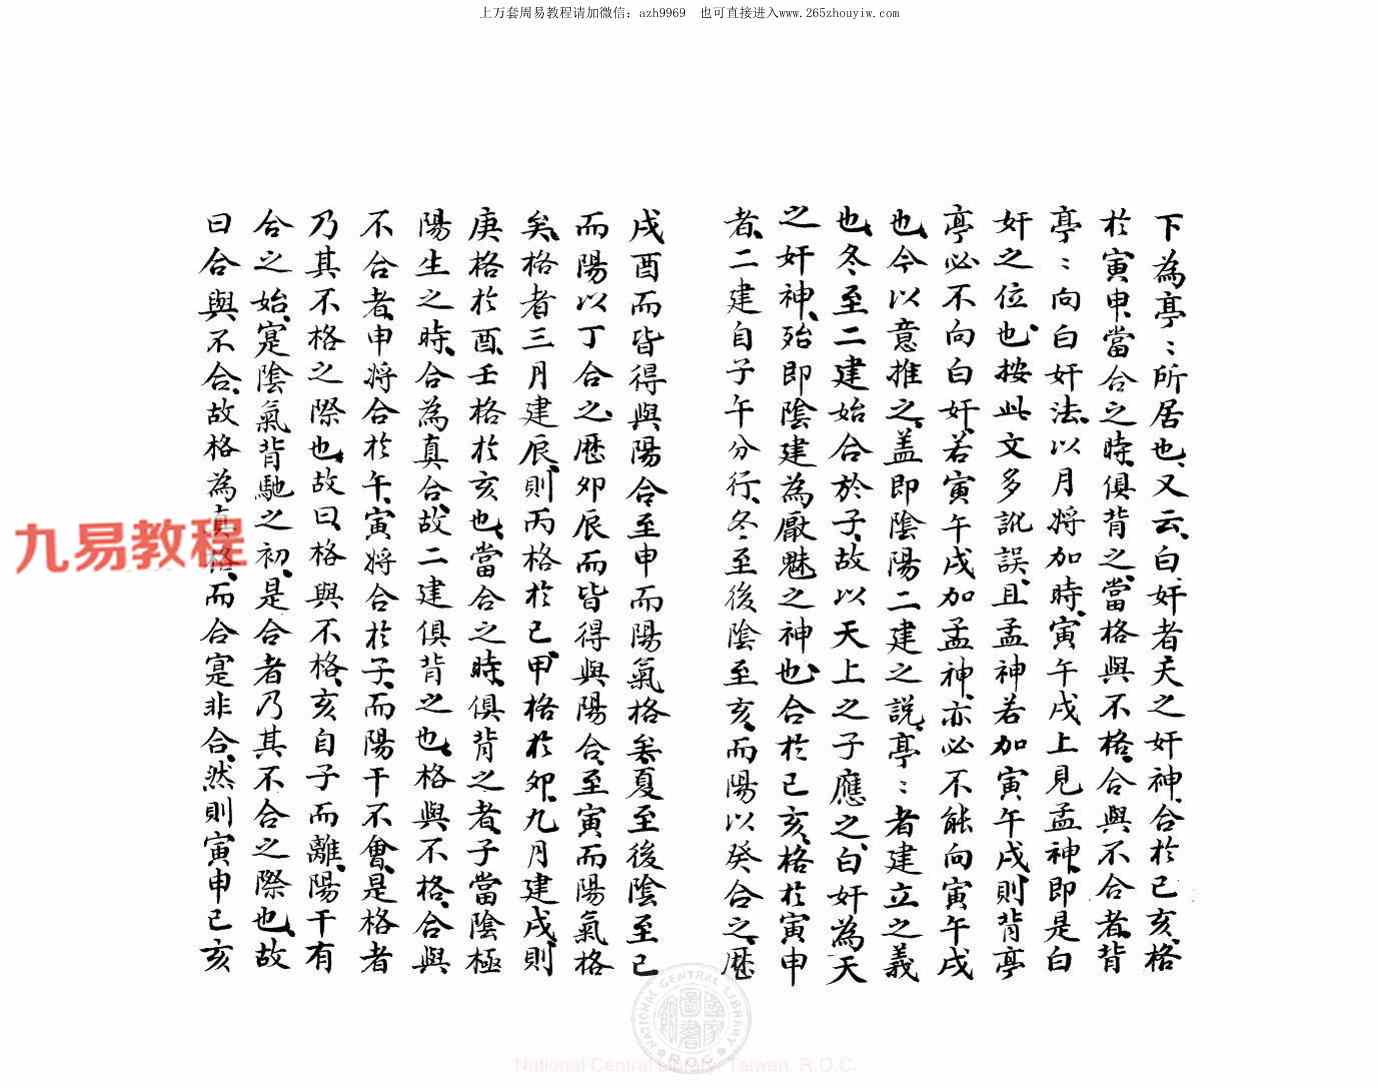 上万套周易教程请加微信：azh9969 也可直接进入www.265zhouyiw.com
下為亭〻所居也、又云、白奸者天之奸神、合於巳亥、格
於寅申、當合之時、俱背之、當格與不格、合與不合者、背
亭〻向白奸法、以月將加時、寅午戌上見孟神、即是白
奸之位也、按此文多訛誤、且孟神若加寅午戌則背亭
亭必不向白奸、若寅午戌加孟神、亦必不能向寅午戌
也、今以意推之、盖即陰陽二建之説、亭〻者建立之義
也、冬至二建始合於子、故以天上之子應之、白奸為天
之奸神、殆即陰建為厭魅之神也、合於巳亥、格於寅申
者、二建自子午分行、冬至後陰至亥、而陽以癸合之、歷
戌酉而皆得與陽合至申而陽氣格矣、夏至後陰至巳
而陽以丁合之、歷卯辰而皆得與陽合、至寅而陽氣格
矣、格者三月建辰、則丙格於巳、甲格於卯、九月建戌、則
庚格於酉、壬格於亥也、當合之時、俱背之者、子當陰極
陽生之時、合為真合、故二建俱背之也、格與不格、合與
不合者、申將合於午、寅將合於子、而陽干不會、是格者
乃其不格之際也、故曰、格與不格、亥自子而離、陽干有
合之始、寔陰氣背馳之初、是合者乃其不合之際也、故
曰合與不合、故格為真格、而合寔非合、然則寅申巳亥
九易教程
NATIONAL CENTRAL LIBRARY R.O.C
National Central Library, Taiwan, R.O.C.